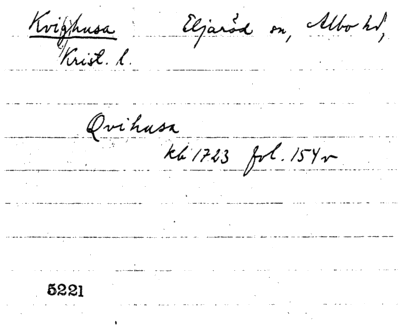 Kvighusa Eljaröd sn, Albo hd,
Krist. l.
Qvihusa
kb 1723 fol. 154v
5221